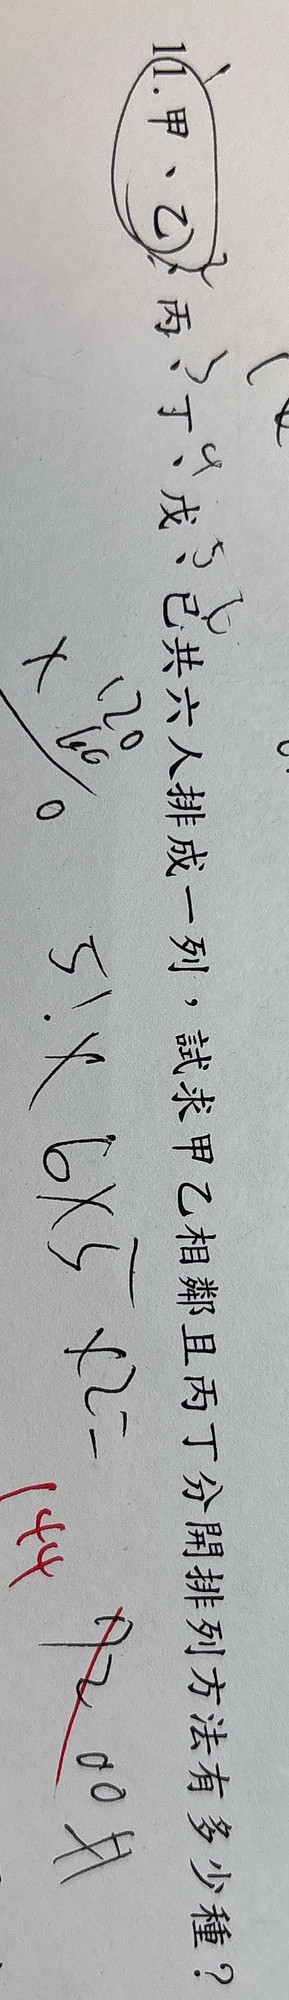 11.甲、乙、丙、丁、戊、己共六人排成一列，試求甲乙相鄰且丙丁分開排列方法有多少種？
2 3 4 5 6
120
×
0
5!×6×5×2=
144